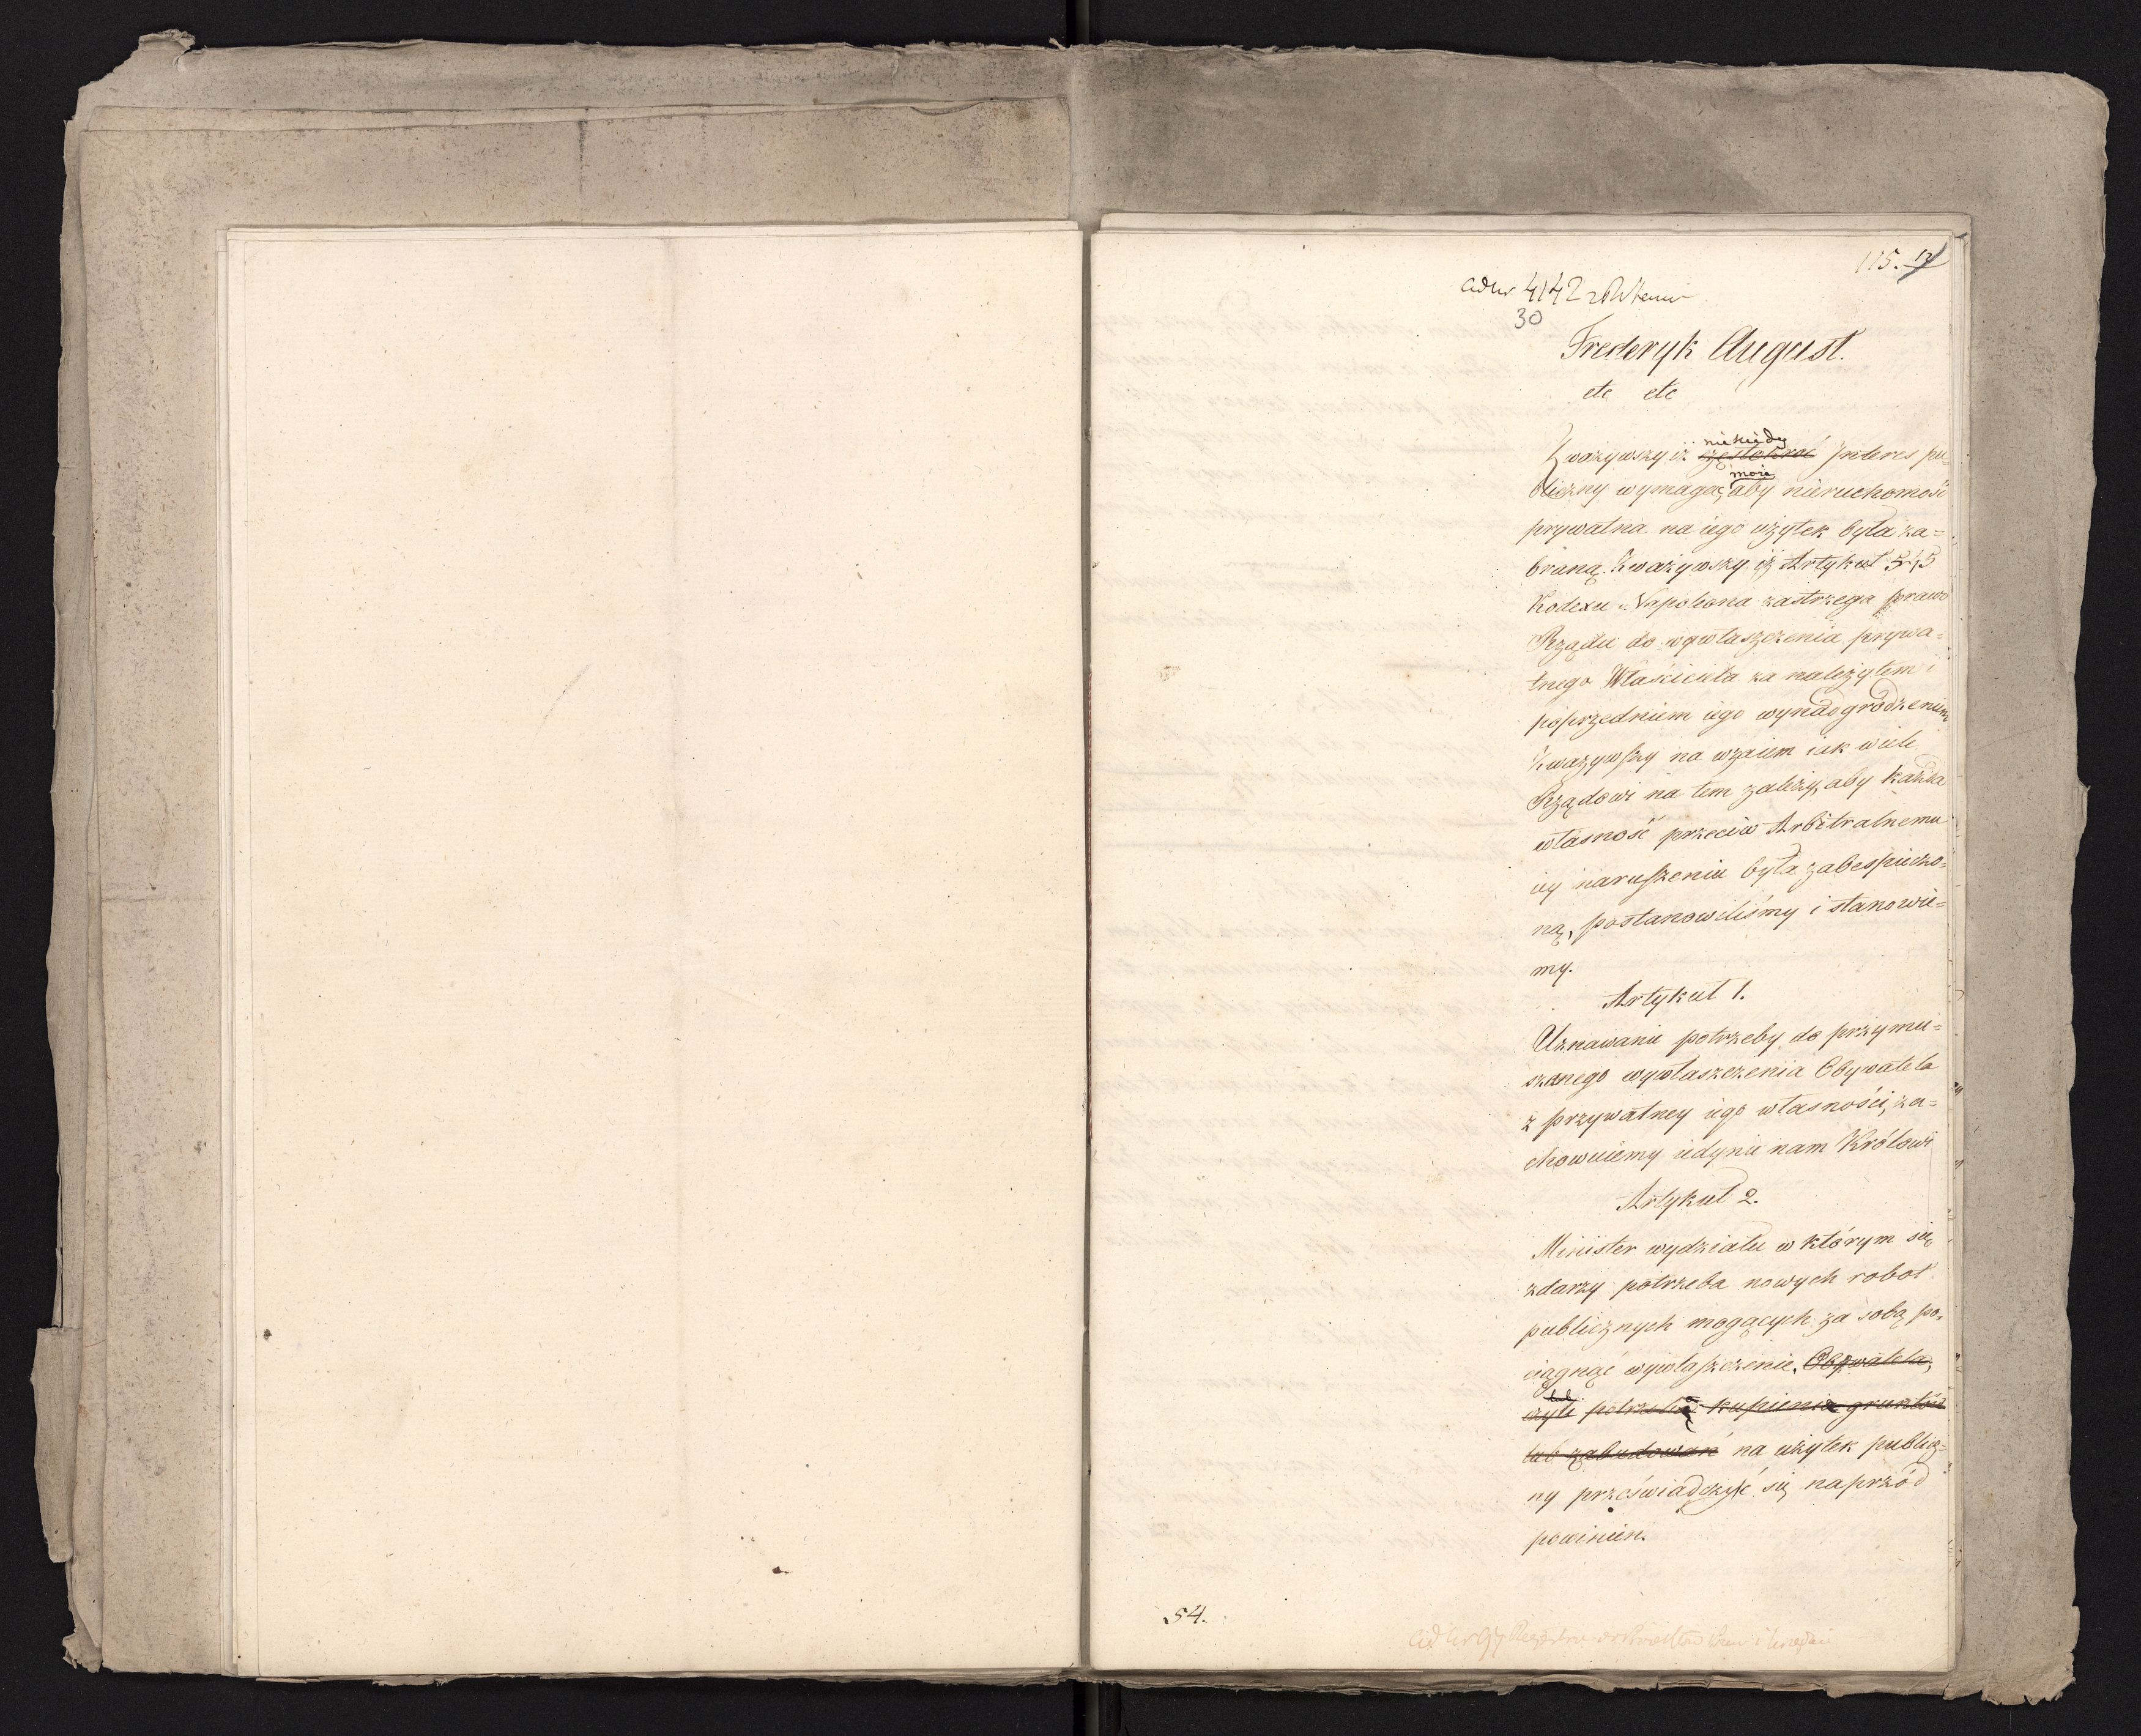 115. 12
ad nr 4142
30
Frederyk August.
etc etc
niekiedy
Zważywszy iż częstokroć Jnteres pu=
może
bliczny wymagać, aby nieruchomość
prywatna na iego użytek była za=
braną. Zważywszy iż Artykuł 545
Kodexu Napoleona zastrzega prawo
Rządu do wywłaszczenia prywa=
tnego Właściciela za należytem i
poprzedniem iego wynadgrodzeniem
Zważywszy na wzaiem iak wiele
Rządowi na tem zależy, aby każda
własność przeciw Arbitralnemu
iey naruszeniu była zabespieczo=
ną, postanowiliśmy i stanowie=
my.
Artykuł 1.
Uznawanie potrzeby do przymu=
szonego wywłaszczenia Obywatela
z przywatney iego własności, za=
chowuiemy iedynie nam Królowi
Artykuł 2.
Minister wydziału w którym się
zdarzy potrzeba nowych robot
publicznych mogących za sobą po=
ciągnąć wywłaszczenie, Obywatela,
lub
czyli potrzeba kupienia gruntów
lub zabudowań na użytek publicz=
ny przeświadczyć się naprzód
powinien.
54.
ad nr 97